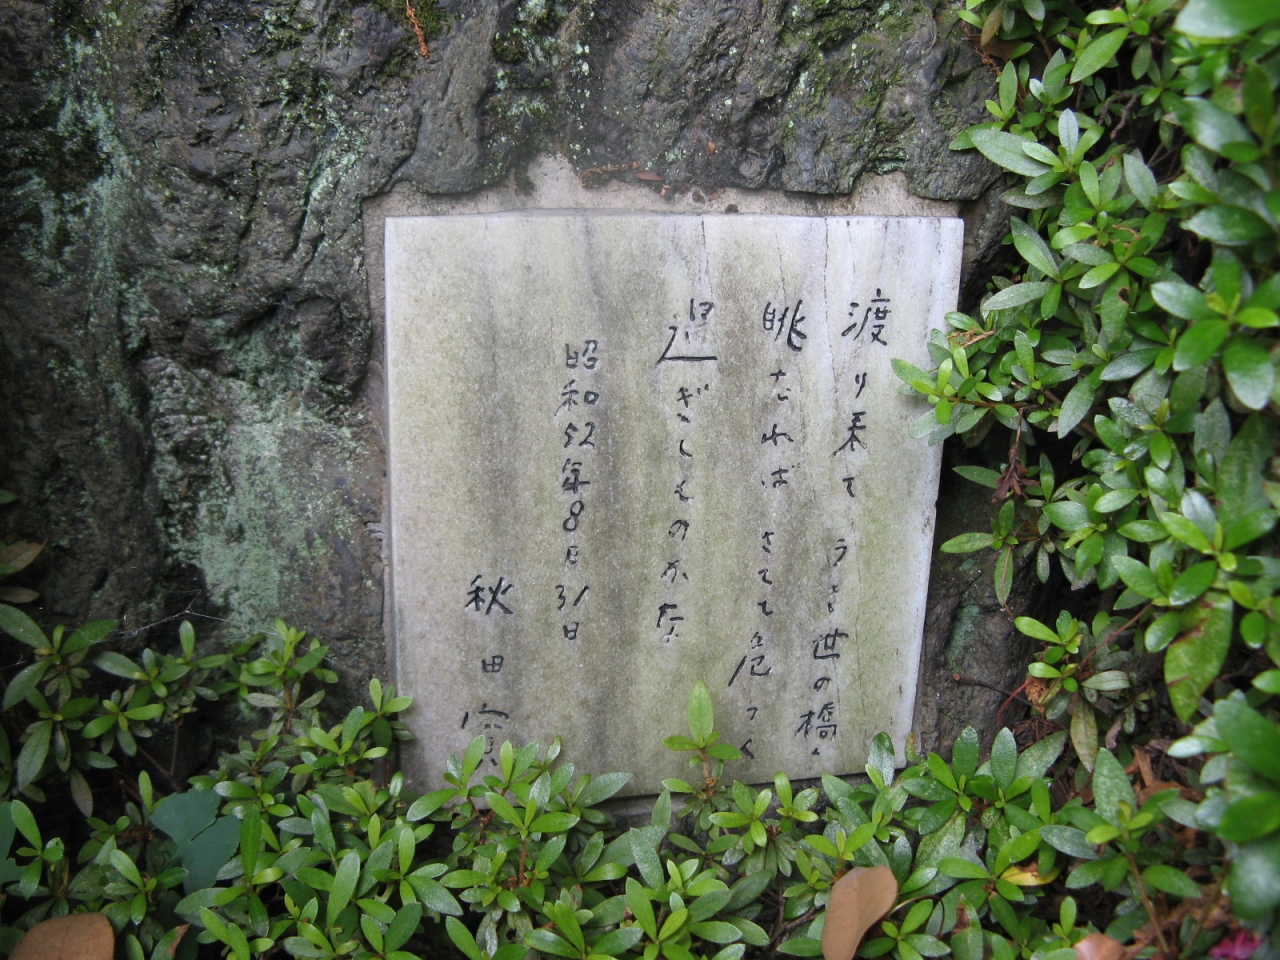 渡り来て うき世の橋を
眺むれば さても危うく
過ぎしものかな
昭和52年8月31日
秋田實